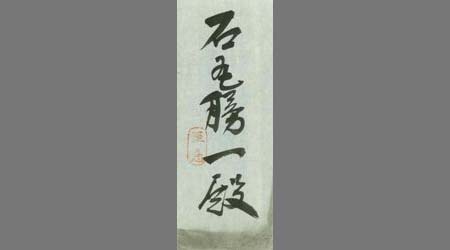 石毛勝一殿